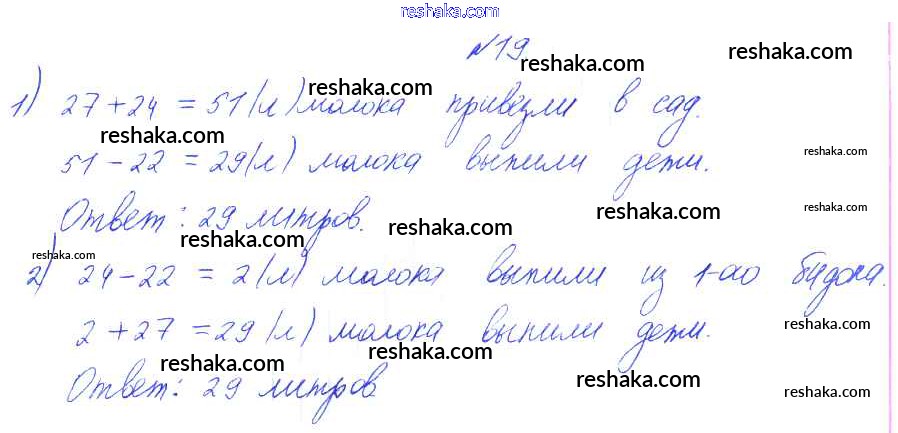 reshaka.com
№19
reshaka.com
reshaka.com
1) 27 + 24 = 51 (л) молока привезли в сад.
reshaka.com
reshaka.com
51 - 22 = 29 (л) молока выпили дети.
Ответ: 29 литров.
reshaka.com
reshaka.com
reshaka.com
reshaka.com
reshaka.com
2) 24 - 22 = 2 (л) молока выпили из 1-ого бидона.
2 + 27 = 29 (л) молока выпили дети.
reshaka.com
reshaka.com
Ответ: 29 литров
reshaka.com
reshaka.com